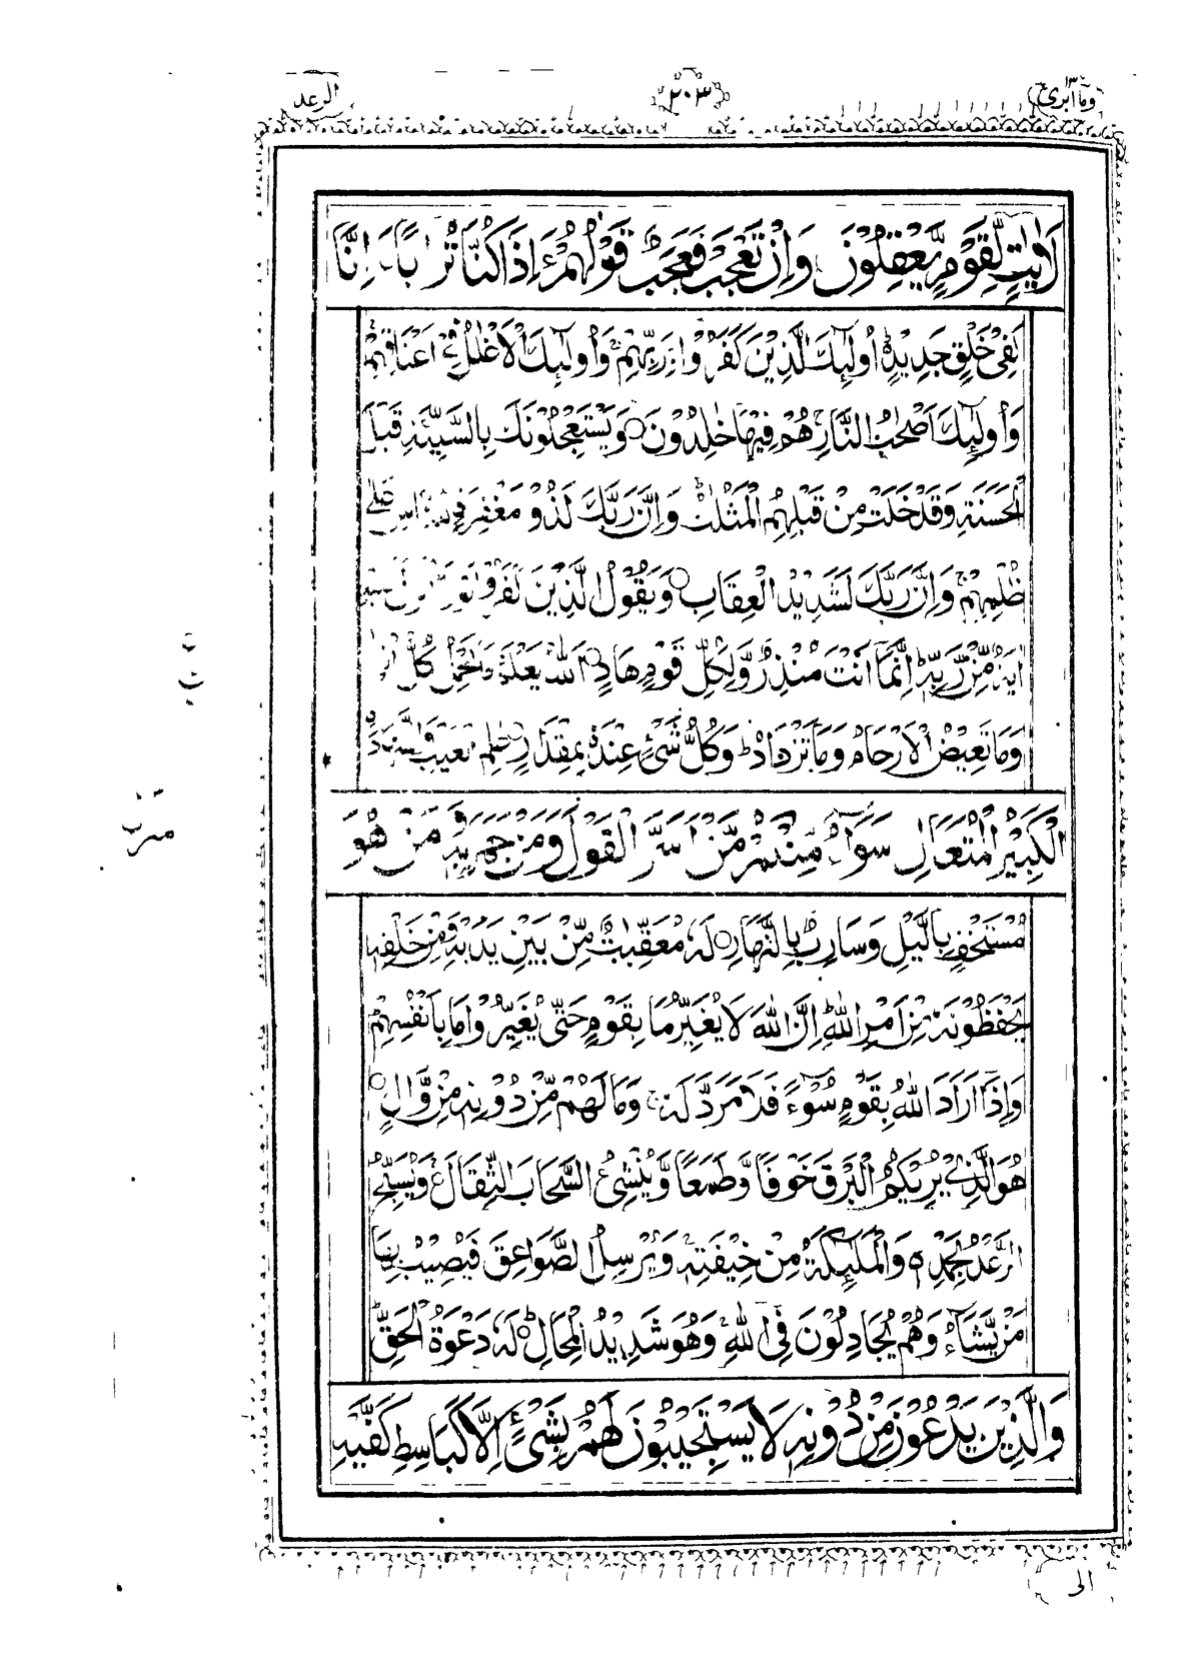 وما ابرئ ١٣
٢٠٣
الرعد
لَاٰيٰتٍ لِّقَوْمٍ يَّعْقِلُوْنَ وَاِنْ تَعْجَبْ فَعَجَبٌ قَوْلُهُمْ ءَاِذَا كُنَّا تُرٰبًا ءَاِنَّا
لَفِيْ خَلْقٍ جَدِيْدٍ اُولٰٓئِكَ الَّذِيْنَ كَفَرُوْا بِرَبِّهِمْ وَاُولٰٓئِكَ الْاَغْلٰلُ فِيْ اَعْنَاقِهِمْ
وَاُولٰٓئِكَ اَصْحٰبُ النَّارِ هُمْ فِيْهَا خٰلِدُوْنَ وَيَسْتَعْجِلُوْنَكَ بِالسَّيِّئَةِ قَبْلَ
الْحَسَنَةِ وَقَدْ خَلَتْ مِنْ قَبْلِهِمُ الْمَثُلٰتُ وَاِنَّ رَبَّكَ لَذُوْ مَغْفِرَةٍ لِّلنَّاسِ عَلٰى
ظُلْمِهِمْ وَاِنَّ رَبَّكَ لَشَدِيْدُ الْعِقَابِ وَيَقُوْلُ الَّذِيْنَ كَفَرُوْا
اٰيَةٌ مِّنْ رَّبِّهٖ اِنَّمَا اَنْتَ مُنْذِرٌ وَّلِكُلِّ قَوْمٍ هَادٍ اَللّٰهُ يَعْلَمُ مَا تَحْمِلُ كُلُّ
وَمَا تَغِيْضُ الْاَرْحَامُ وَمَا تَزْدَادُ وَكُلُّ شَيْءٍ عِنْدَهٗ بِمِقْدَارٍ عٰلِمُ الْغَيْبِ وَالشَّهَادَةِ
الْكَبِيْرُ الْمُتَعَالِ سَوَآءٌ مِّنْكُمْ مَّنْ اَسَرَّ الْقَوْلَ وَمَنْ جَهَرَ بِهٖ وَمَنْ هُوَ
مُسْتَخْفٍ بِالَّيْلِ وَسَارِبٌ بِالنَّهَارِ لَهٗ مُعَقِّبٰتٌ مِّنْ بَيْنِ يَدَيْهِ وَمِنْ خَلْفِهٖ
يَحْفَظُوْنَهٗ مِنْ اَمْرِ اللّٰهِ اِنَّ اللّٰهَ لَا يُغَيِّرُ مَا بِقَوْمٍ حَتّٰى يُغَيِّرُوْا مَا بِاَنْفُسِهِمْ
وَاِذَا اَرَادَ اللّٰهُ بِقَوْمٍ سُوْٓءًا فَلَا مَرَدَّ لَهٗ وَمَا لَهُمْ مِّنْ دُوْنِهٖ مِنْ وَّالٍ
هُوَ الَّذِيْ يُرِيْكُمُ الْبَرْقَ خَوْفًا وَّطَمَعًا وَّيُنْشِئُ السَّحَابَ الثِّقَالَ وَيُسَبِّحُ
الرَّعْدُ بِحَمْدِهٖ وَالْمَلٰٓئِكَةُ مِنْ خِيْفَتِهٖ وَيُرْسِلُ الصَّوَاعِقَ فَيُصِيْبُ بِهَا
مَنْ يَّشَآءُ وَهُمْ يُجَادِلُوْنَ فِي اللّٰهِ وَهُوَ شَدِيْدُ الْمِحَالِ لَهٗ دَعْوَةُ الْحَقِّ
وَالَّذِيْنَ يَدْعُوْنَ مِنْ دُوْنِهٖ لَا يَسْتَجِيْبُوْنَ لَهُمْ بِشَيْءٍ اِلَّا كَبَاسِطِ كَفَّيْهِ
الى